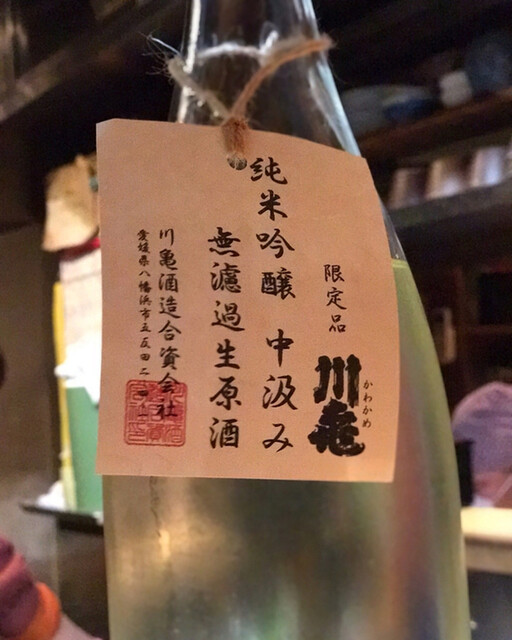 限定品
川亀
かわかめ
純米吟醸 中汲み
無濾過生原酒
川亀酒造合資会社
愛媛県八幡浜市五反田二